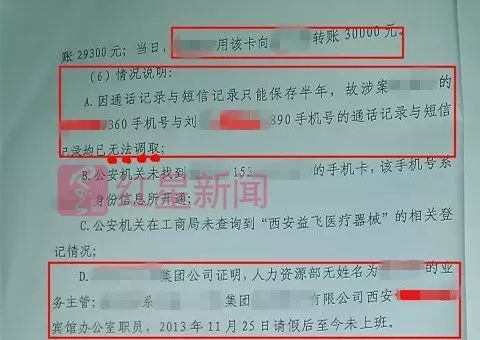 账 29300 元；当日，用该卡向转账 30000 元。
（6）情况说明：
A.因通话记录与短信记录只能保存半年，故涉案的
360 手机号与刘890 手机号的通话记录与短信
记录均已无法调取；
B.公安机关未找到153的手机卡，该手机号系
身份信息所开通；
C.公安机关在工商局未查询到“西安益飞医疗器械”的相关登
记情况；
D.集团公司证明，人力资源部无姓名为的业
务主管；系集团有限公司西安
宾馆办公室职员，2013 年 11 月 25 日请假后至今未上班。
红星新闻